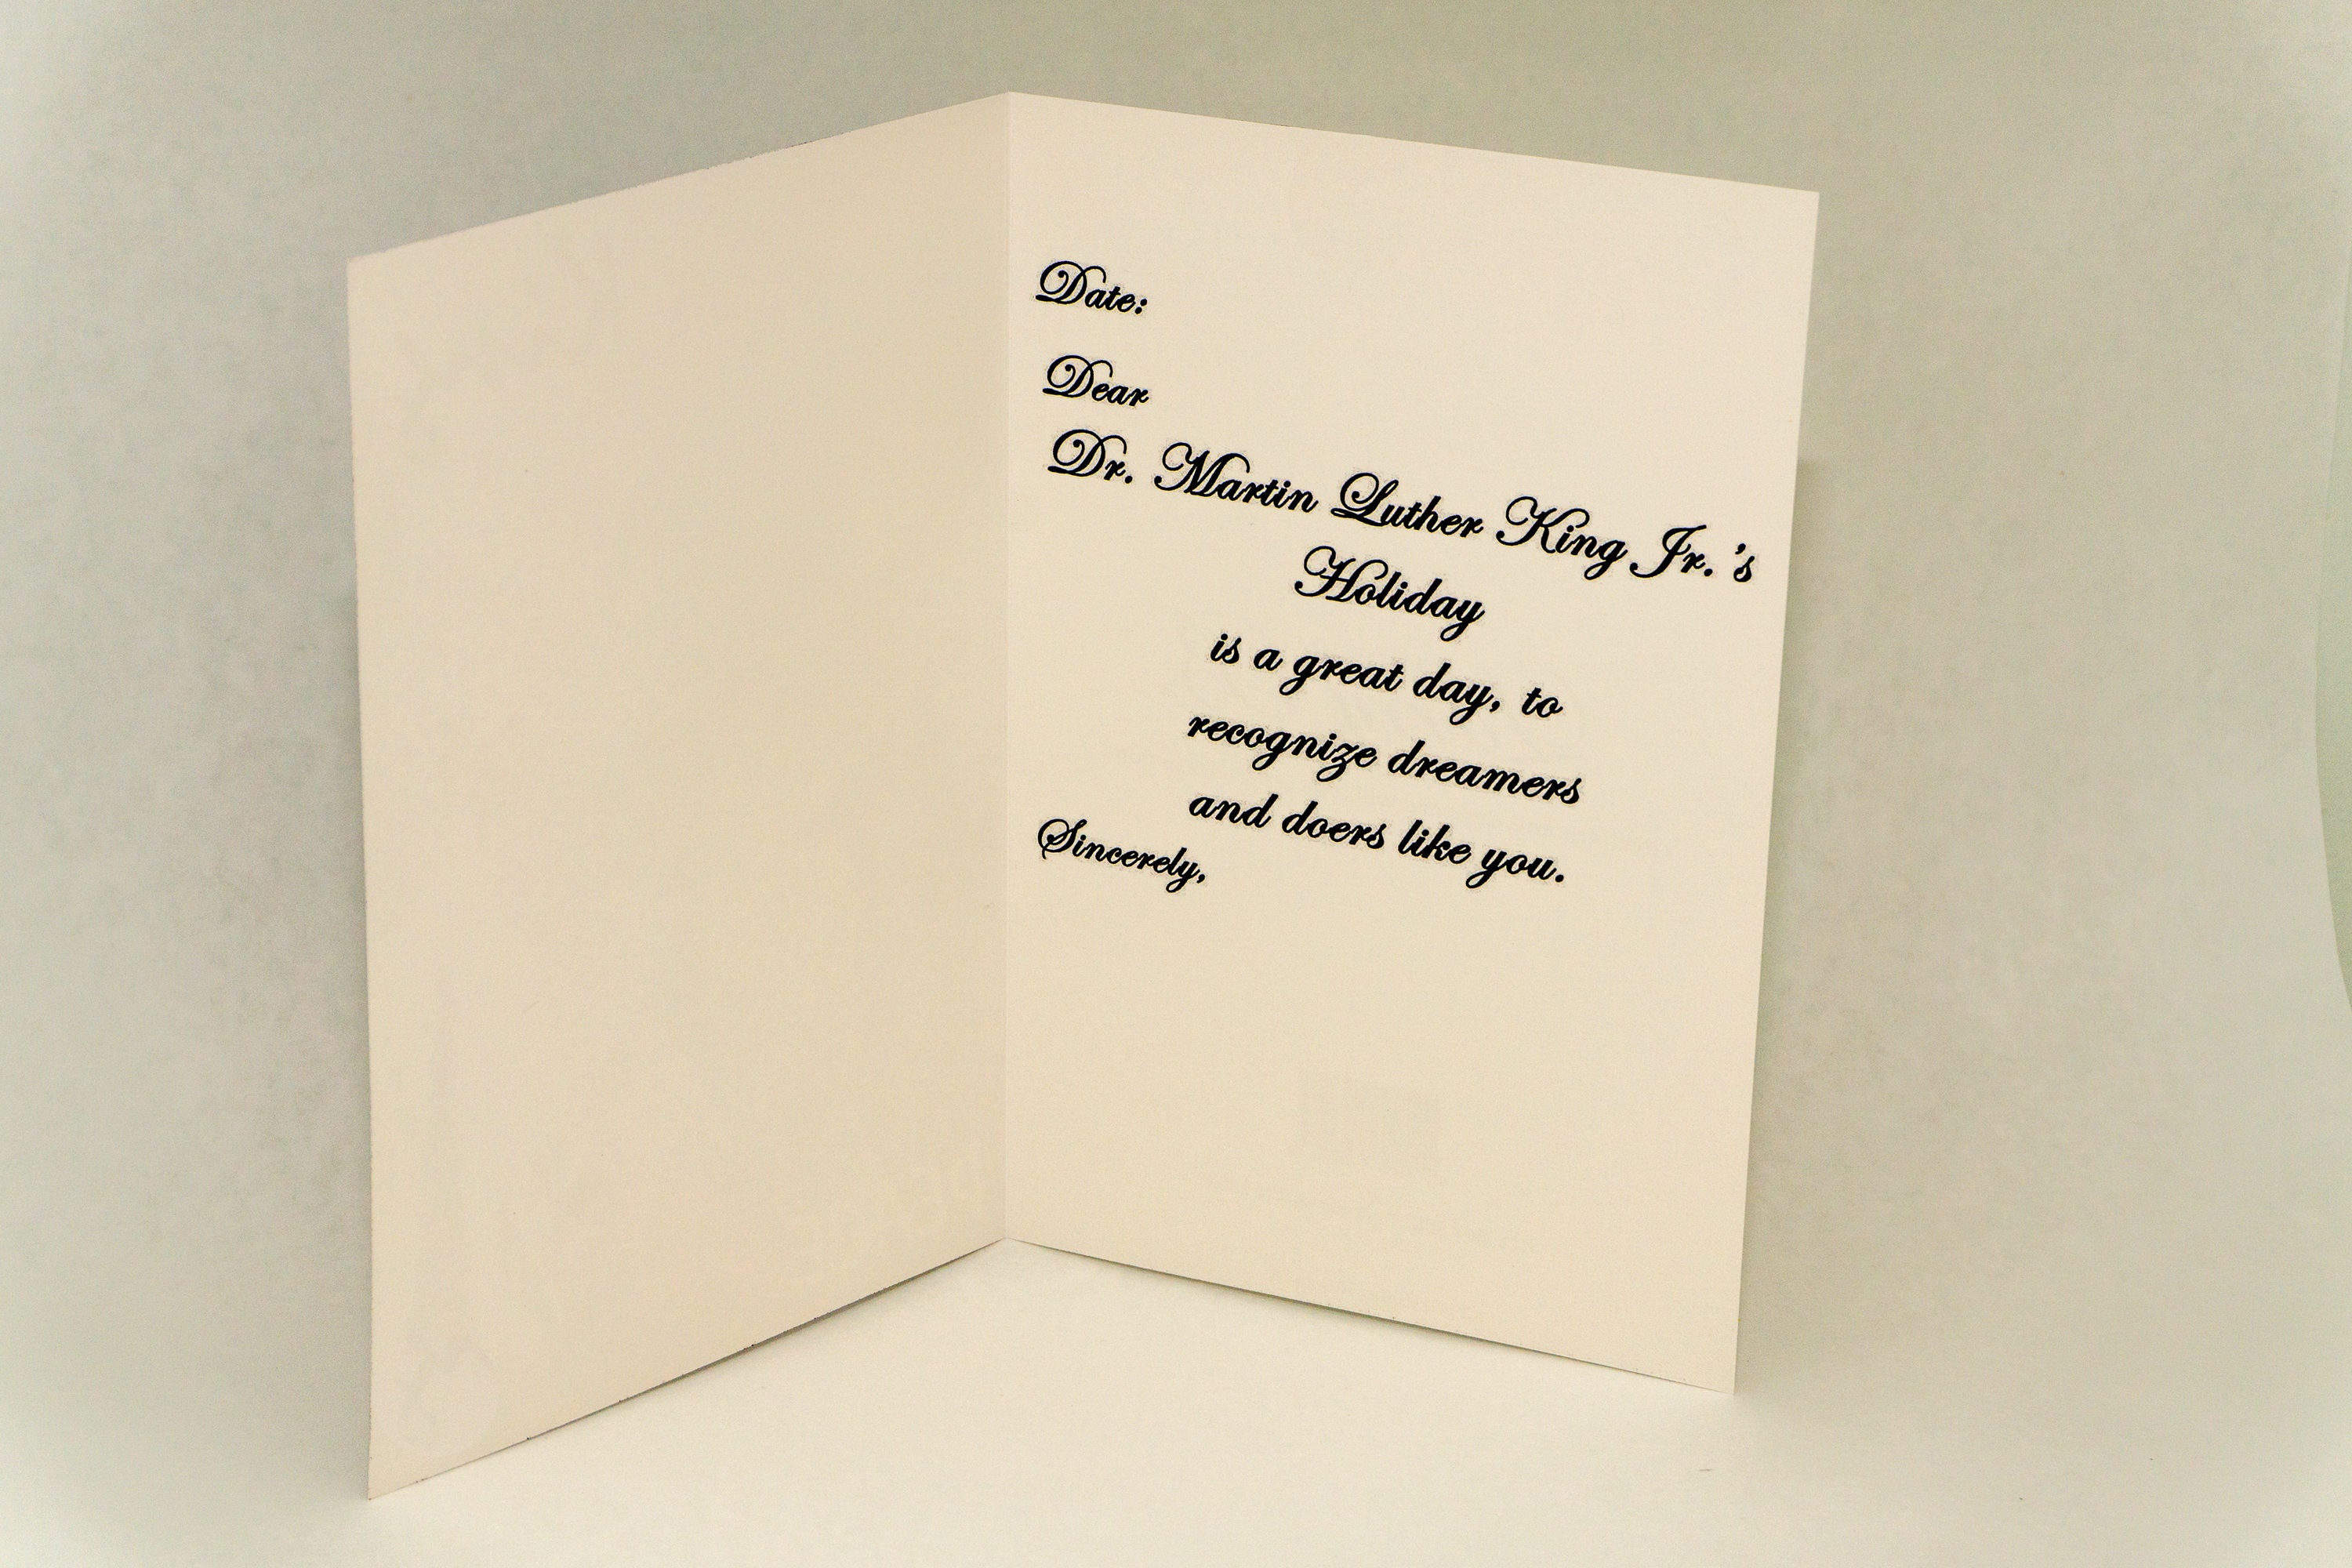 Date:
Dear
Dr. Martin Luther King Jr.'s
Holiday
is a great day, to
recognize dreamers
and doers like you.
Sincerely,